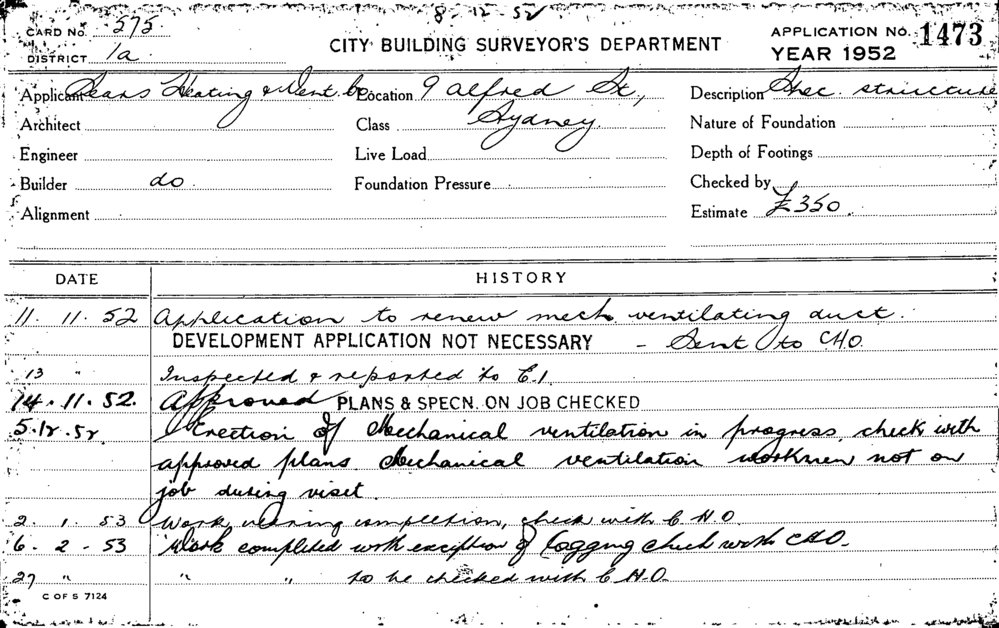 8-12-52
CARD No. 575
DISTRICT 1a
CITY BUILDING SURVEYOR'S DEPARTMENT
APPLICATION No. 1473
YEAR 1952
Applicant Pears Heating & Vent. Co. Location 9 Alfred St, Description Spec. structure
Architect Class Sydney. Nature of Foundation
Engineer Live Load Depth of Footings
Builder do. Foundation Pressure Checked by
Alignment Estimate £350.
DATE HISTORY
11. 11. 52 Application to renew mech. ventilating duct.
DEVELOPMENT APPLICATION NOT NECESSARY - Sent to CHO.
13 " Inspected & reported to C.I.
14.11.52. Approved PLANS & SPECN. ON JOB CHECKED
5.12.52 Erection of Mechanical ventilation in progress, check with
approved plans. Mechanical ventilation workmen not on
job during visit.
2. 1. 53 Work nearing completion, check with C.H.O.
6. 2 - 53 Work completed with exception of lagging check with CHO.
27 " " " to be checked with C.H.O.
C OF S 7124